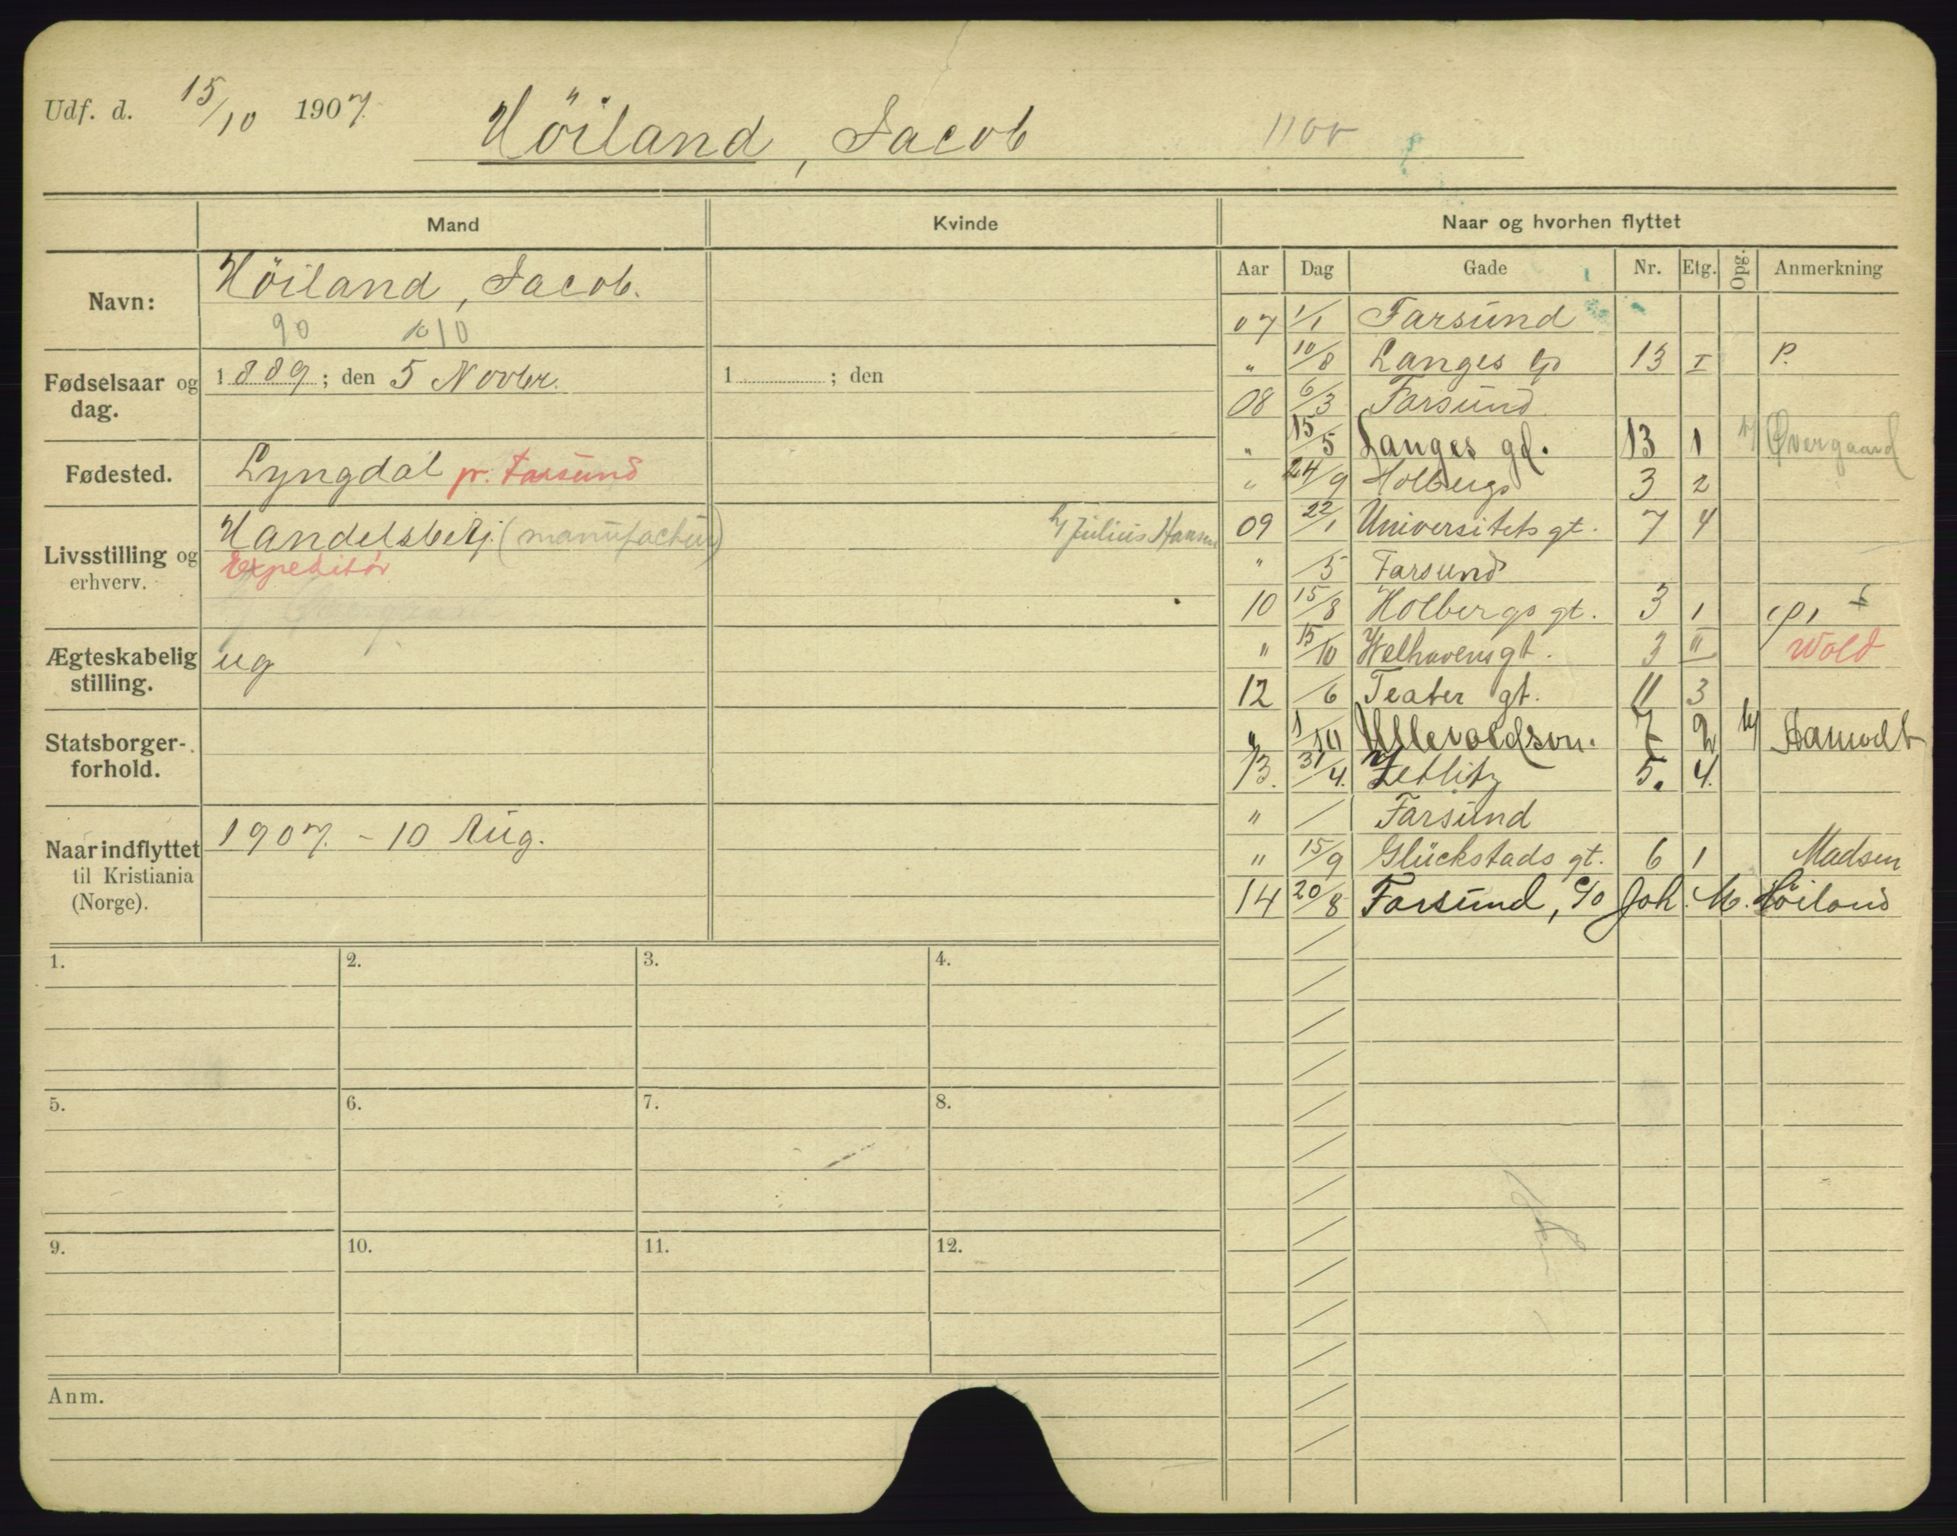 Udf. d. 15/10 1907.
Höiland, Jacob
Mand
Kvinde
Naar og hvorhen flyttet
Navn:
Höiland, Jacob.
90 10
Fødselsaar og dag.
1889; den 5 Novbr.
1 ; den
Fødested.
Lyngdal pr. Farsund
Livsstilling og erhverv.
Handelsbetj. (manufactur) h/ Julius Hansen
Expeditör
Ægteskabelig stilling.
ug
Statsborgerforhold.
Naar indflyttet til Kristiania (Norge).
1907. - 10 Aug.
Aar Dag Gade Nr. Etg. Opg. Anmerkning
07 1/1 Farsund
" 10/8 Langes g 13 I P.
08 6/3 Farsund
" 15/5 Langes gd. 13 1 h/ Øvergaard
" 24/9 Holbergs 3 2
09 22/1 Universitets gt. 7 4
" /5 Farsund
10 15/8 Holbergs gt. 3 1 p,
" 15/10 Welhavens gt. 3 II Wold
12 /6 Teater gt. 11 3
" 1/10 Ullevoldsvn. 7 2 h/ Aamodt
13. 31/4. Zetlitz 5. 4.
" / Farsund
" 15/9 Glückstads gt. 6 1 Madsen
14 20/8 Farsund, c/o Joh. M. Höiland
1. 2. 3. 4.
5. 6. 7. 8.
9. 10. 11. 12.
Anm.